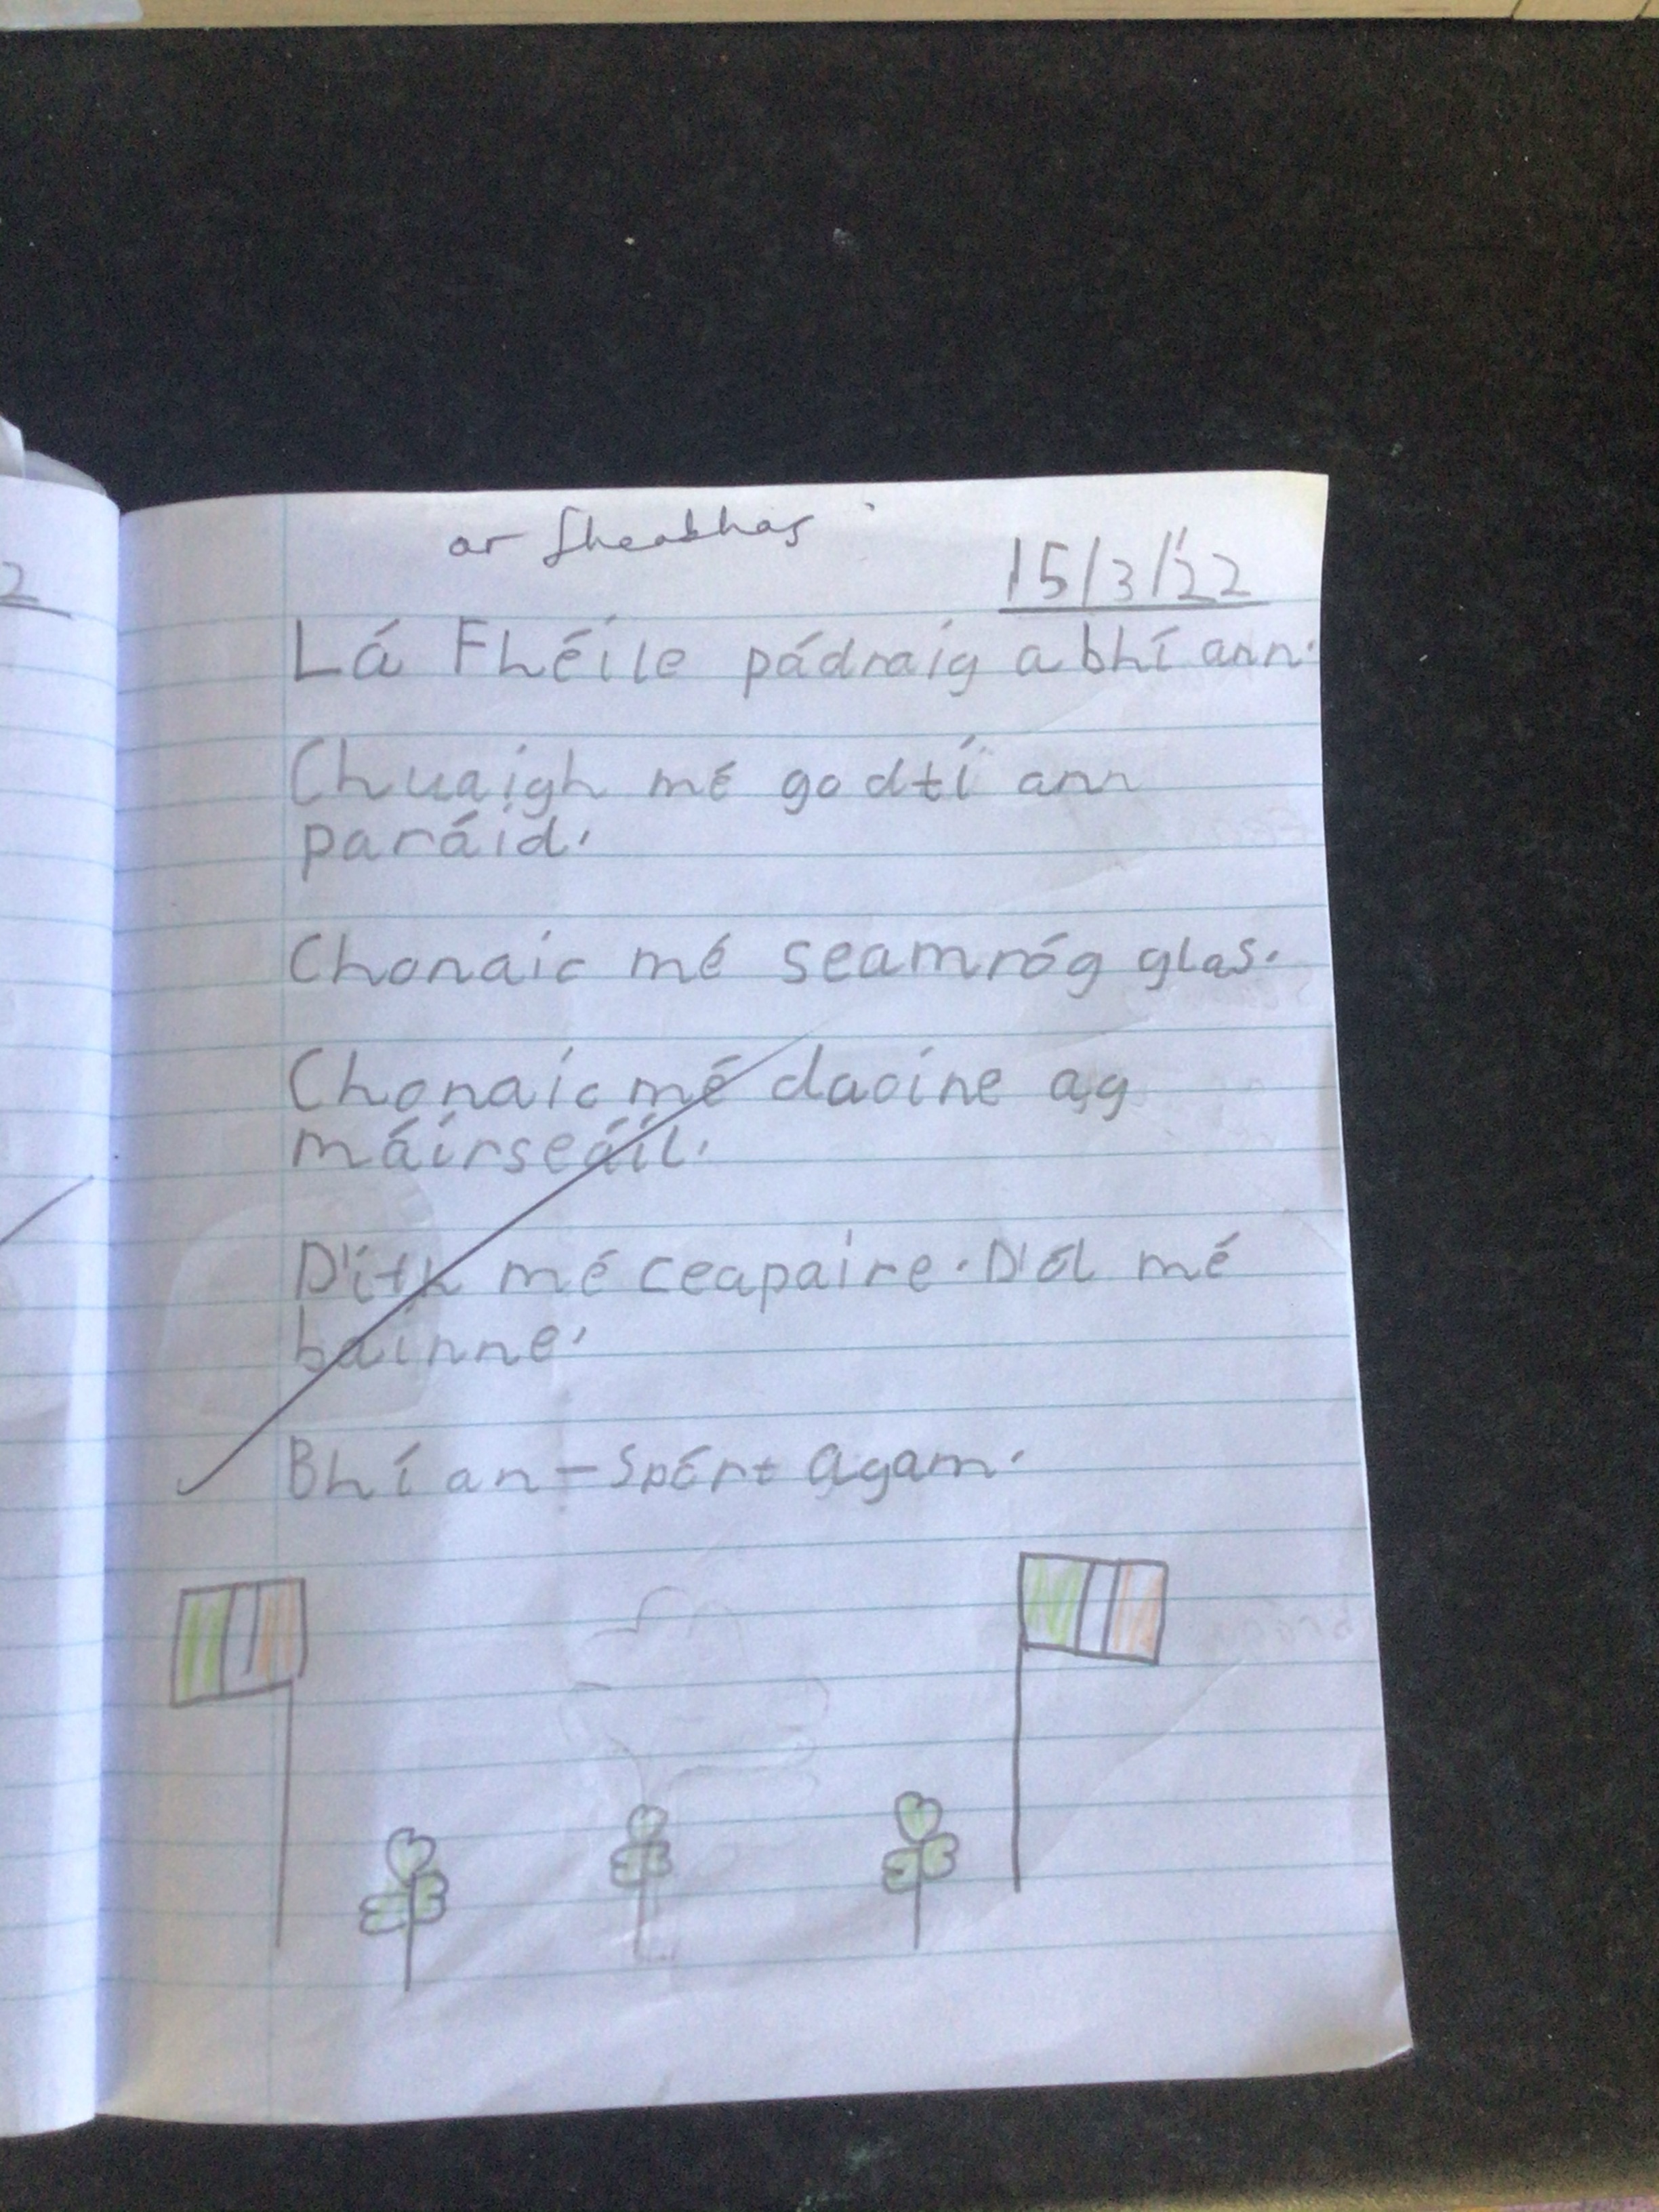 2
ar fheabhas
15/3/'22
Lá Fhéile pádraig a bhí ann.
Chuaigh mé go dtí ann
paráid.
Chonaic mé seamróg glas.
Chonaic mé daoine ag
máirseáil.
D'ith mé ceapaire. D'ól mé
bainne.
Bhí an-Spórt agam.